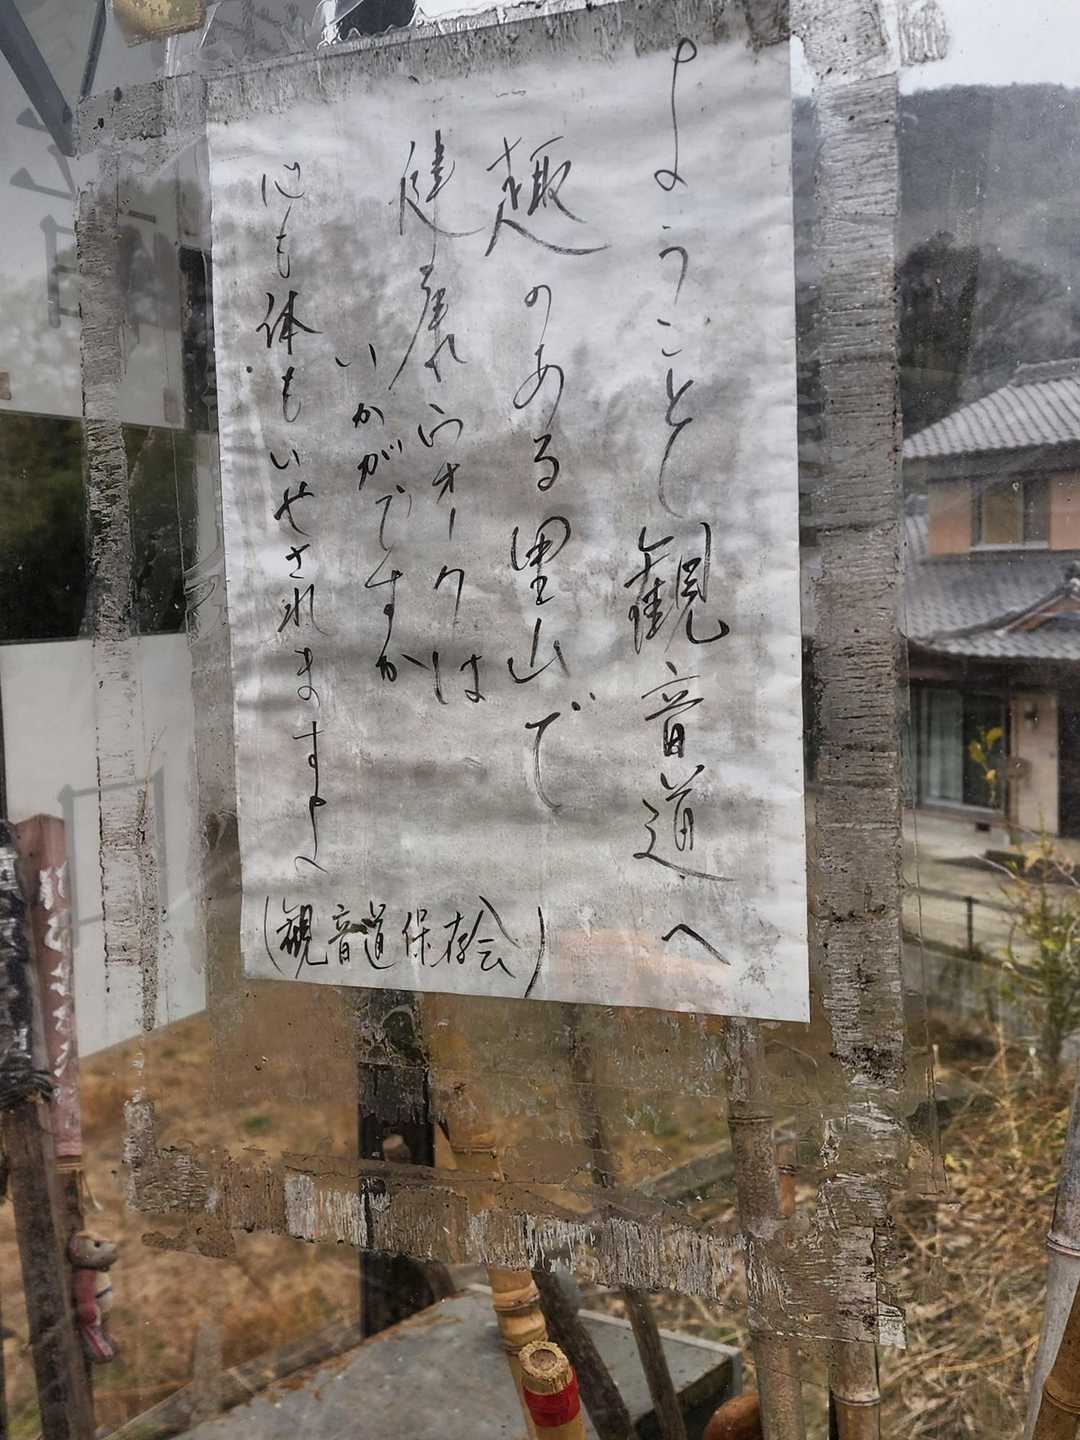 ようこそ観音道へ
趣のある里山で
健康ウォークは
いかがですか
心も体もいやされますよ
(観音道保存会)